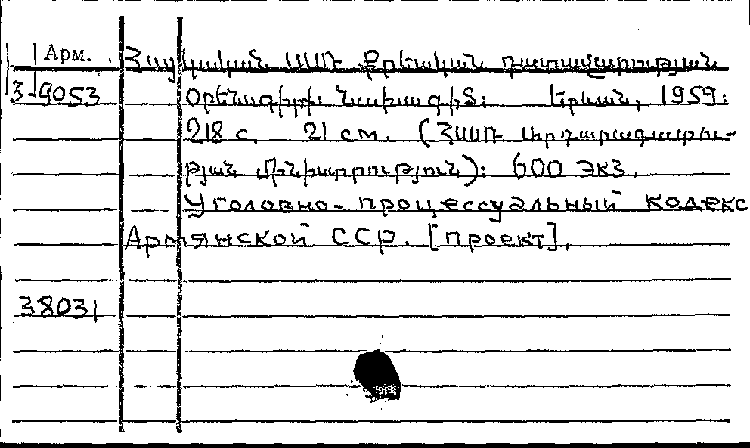 Арм.
Հայկական ՍՍՌ քրեական դատավարության
3-9053 օրենսգիրք։ Նախագիծ։ Երևան, 1959։
218 с. 21 см. (ՀՍՍՌ Արդարադատու-
թյան մինիստրություն)։ 600 экз.
Уголовно-процессуальный кодекс
Армянской ССР. [проект].
38031